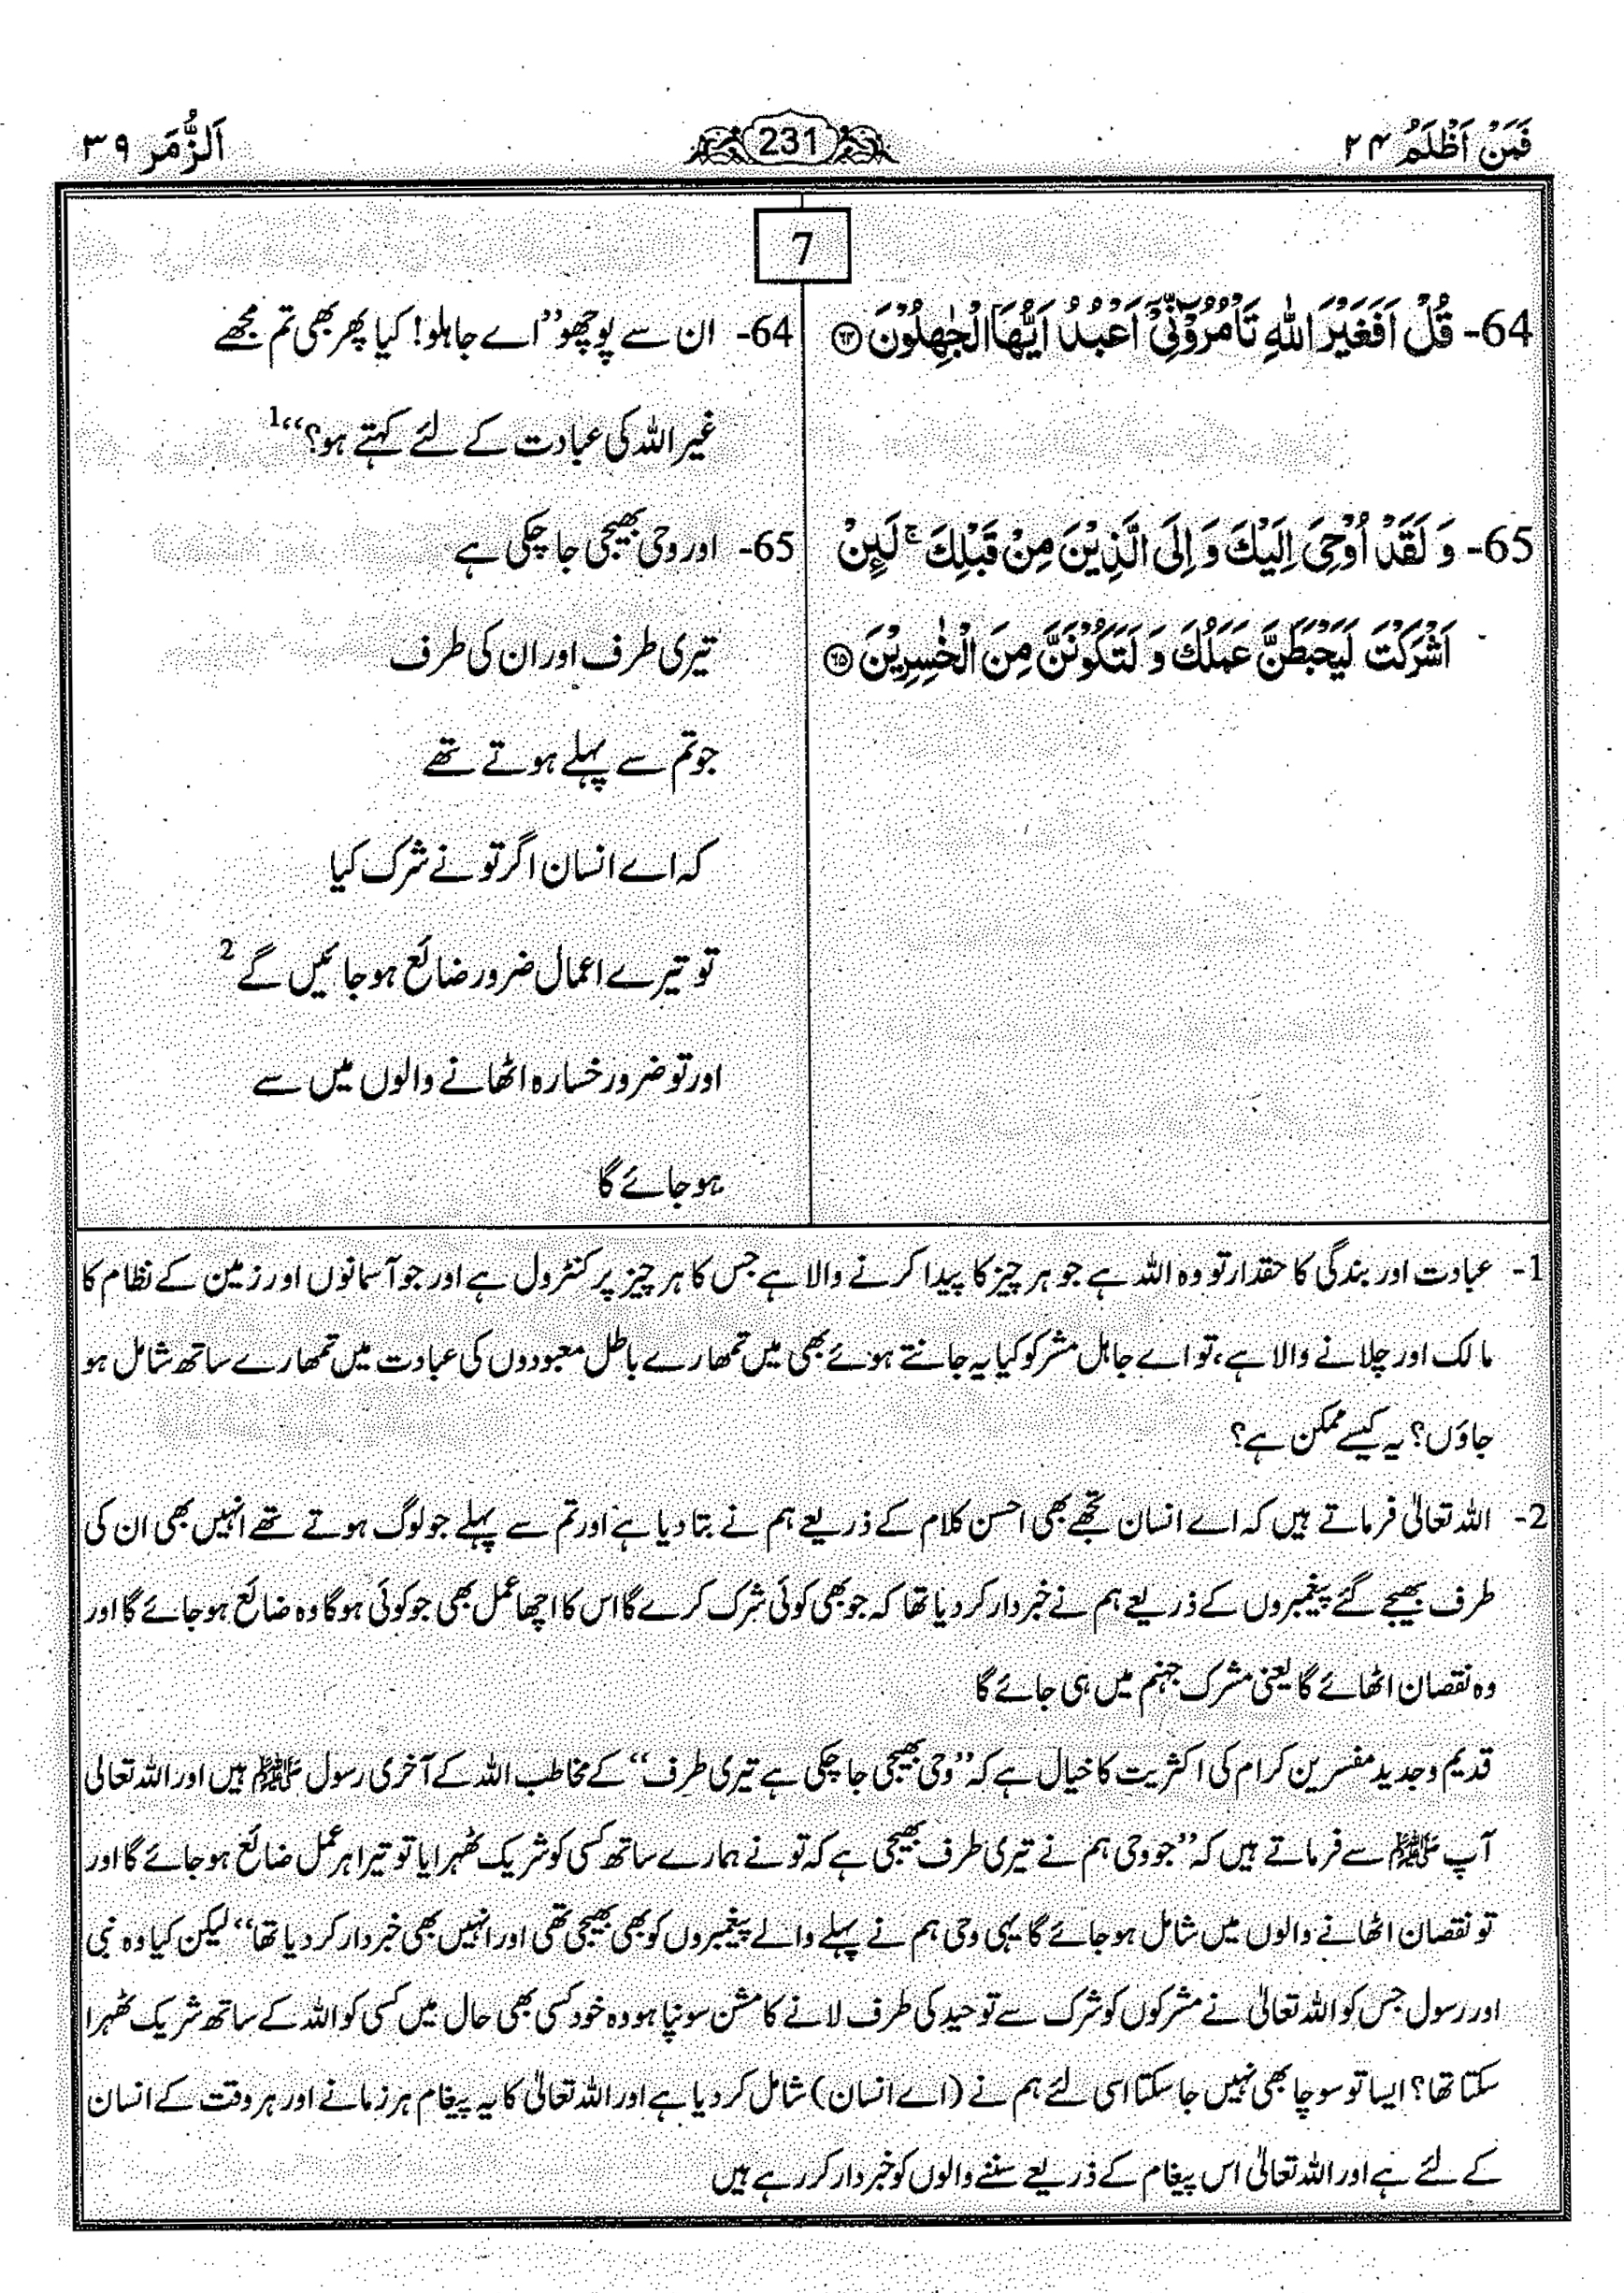 فَمَنْ اَظْلَمُ ۲۴
231
اَلزُّمَر ۳۹
7
64- قُلْ اَفَغَيْرَ اللّٰهِ تَاْمُرُوْٓنِّيْٓ اَعْبُدُ اَيُّهَا الْجٰهِلُوْنَ ﴿۶۴﴾
65- وَ لَقَدْ اُوْحِيَ اِلَيْكَ وَ اِلَى الَّذِيْنَ مِنْ قَبْلِكَ ۚ لَىِٕنْ
اَشْرَكْتَ لَيَحْبَطَنَّ عَمَلُكَ وَ لَتَكُوْنَنَّ مِنَ الْخٰسِرِيْنَ ﴿۶۵﴾
64- ان سے پوچھو ”اے جاہلو! کیا پھر بھی تم مجھے
غیر اللہ کی عبادت کے لئے کہتے ہو؟“ 1
65- اور وحی بھیجی جا چکی ہے
تیری طرف اور ان کی طرف
جو تم سے پہلے ہوتے تھے
کہ اے انسان اگر تو نے شرک کیا
تو تیرے اعمال ضرور ضائع ہو جائیں گے 2
اور تو ضرور خسارہ اٹھانے والوں میں سے
ہو جائے گا
1- عبادت اور بندگی کا حقدار تو وہ اللہ ہے جو ہر چیز کا پیدا کرنے والا ہے جس کا ہر چیز پر کنٹرول ہے اور جو آسمانوں اور زمین کے نظام کا
مالک اور چلانے والا ہے، تو اے جاہل مشرکو کیا یہ جانتے ہوئے بھی میں تمھارے باطل معبودوں کی عبادت میں تمھارے ساتھ شامل ہو
جاؤں؟ یہ کیسے ممکن ہے؟
2- اللہ تعالیٰ فرماتے ہیں کہ اے انسان تجھے بھی احسن کلام کے ذریعے ہم نے بتا دیا ہے اور تم سے پہلے جو لوگ ہوتے تھے انہیں بھی ان کی
طرف بھیجے گئے پیغمبروں کے ذریعے ہم نے خبردار کر دیا تھا کہ جو بھی کوئی شرک کرے گا اس کا اچھا عمل بھی جو کوئی ہوگا وہ ضائع ہو جائے گا اور
وہ نقصان اٹھائے گا یعنی مشرک جہنم میں ہی جائے گا
قدیم و جدید مفسرین کرام کی اکثریت کا خیال ہے کہ ”وحی بھیجی جا چکی ہے تیری طرف“ کے مخاطب اللہ کے آخری رسول ﷺ ہیں اور اللہ تعالی
آپ ﷺ سے فرماتے ہیں کہ ”جو وحی ہم نے تیری طرف بھیجی ہے کہ تو نے ہمارے ساتھ کسی کو شریک ٹھہرایا تو تیرا ہر عمل ضائع ہو جائے گا اور
تو نقصان اٹھانے والوں میں شامل ہو جائے گا یہی وحی ہم نے پہلے والے پیغمبروں کو بھی بھیجی تھی اور انہیں بھی خبردار کر دیا تھا“ لیکن کیا وہ نبی
اور رسول جس کو اللہ تعالیٰ نے مشرکوں کو شرک سے توحید کی طرف لانے کا مشن سونپا ہو وہ خود کسی بھی حال میں کسی کو اللہ کے ساتھ شریک ٹھہرا
سکتا تھا؟ ایسا تو سوچا بھی نہیں جا سکتا اسی لئے ہم نے (اے انسان) شامل کر دیا ہے اور اللہ تعالیٰ کا یہ پیغام ہر زمانے اور ہر وقت کے انسان
کے لئے ہے اور اللہ تعالیٰ اس پیغام کے ذریعے سننے والوں کو خبردار کر رہے ہیں